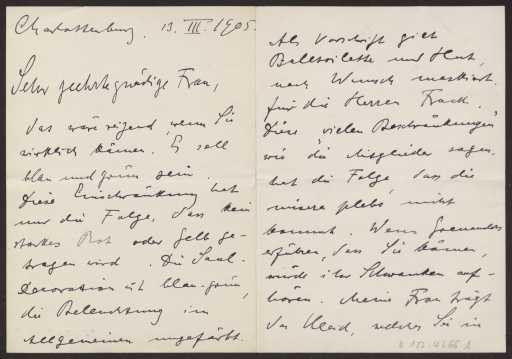 Charlottenburg. 13. III. 1905.
Sehr geehrte gnädige Frau,
das wäre reizend, wenn Sie
wirklich kämen. Es soll
blau und grün sein.
Diese Einschränkung hat
nur die Folge, dass kein
starkes Rot oder Gelb ge-
tragen wird. Die Saal-
Decoration ist blau-grün,
die Beleuchtung im
Allgemeinen ungefärbt.
Als Vorschrift gilt
Balltoilette und Hut,
nach Wunsch maskiert.
für die Herren Frack.
Diese "vielen Beschränkungen"
wie die Mitglieder sagen,
hat die Folge, dass die
misera plebs nicht
kommt. Wenn
erführen, dass Sie kämen,
würde ihr Schwanken auf-
hören. Meine Frau trägt
das Kleid, welches Sie in